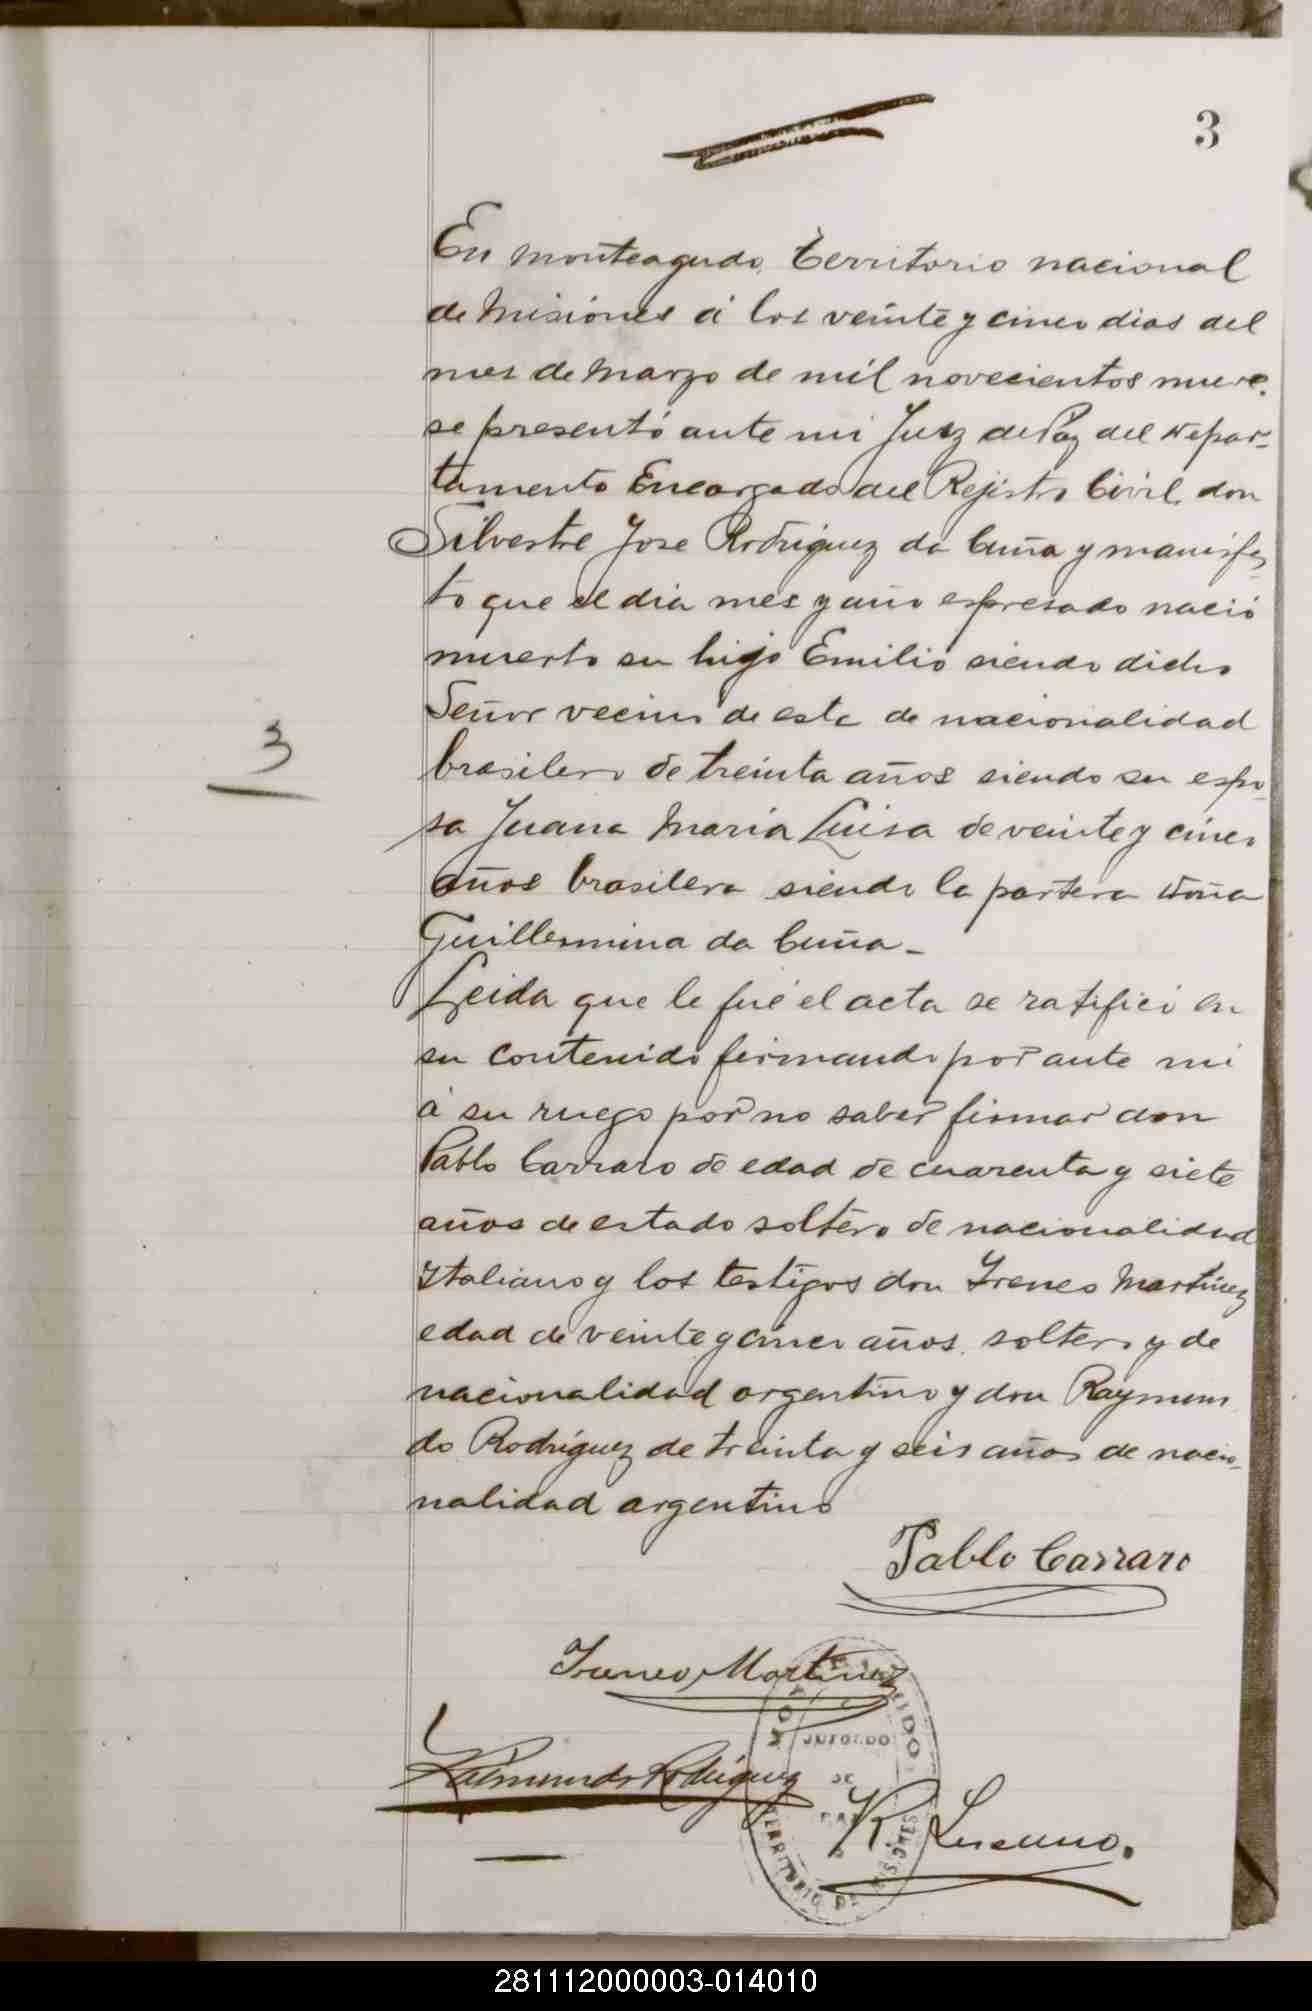 3
En Monteagudo, Territorio nacional
de Misiónes á los veinte y cinco dias del
mes de Marzo de mil novecientos nueve.
se presentó ante mi Juez de Paz del Depar-
tamento Encargado del Rejistro Civil, don
Silvestre Jose Rodriguez da Cuña y manifes-
to que el dia mes y año espresado nació
muerto su hijo Emilio siendo dicho
Señor vecino de esta de nacionalidad
brasilero de treinta años siendo su espo-
3
sa Juana Maria Luisa de veinte y cinco
años brasilera siendo la partera Doña
Guillermina da Cuña-
Leida que le fué el acta se ratificó en
su contenido firmando por ante mi
á su ruego por no saber firmar don
Pablo Carraro de edad de cuarenta y siete
años de estado soltero de nacionalidad
Italiano y los testigos don Ireneo Martinez
edad de veinte y cinco años, soltero y de
nacionalidad argentino y don Raymun
do Rodriguez de treinta y seis años de nacio-
nalidad argentino
Pablo Carraro
Ireneo Martinez
Raimundo Rodriguez
JUZGADO
DE
PAZ
TERRITORIO DE MISIONES
R. Luscano.
281112000003-014010